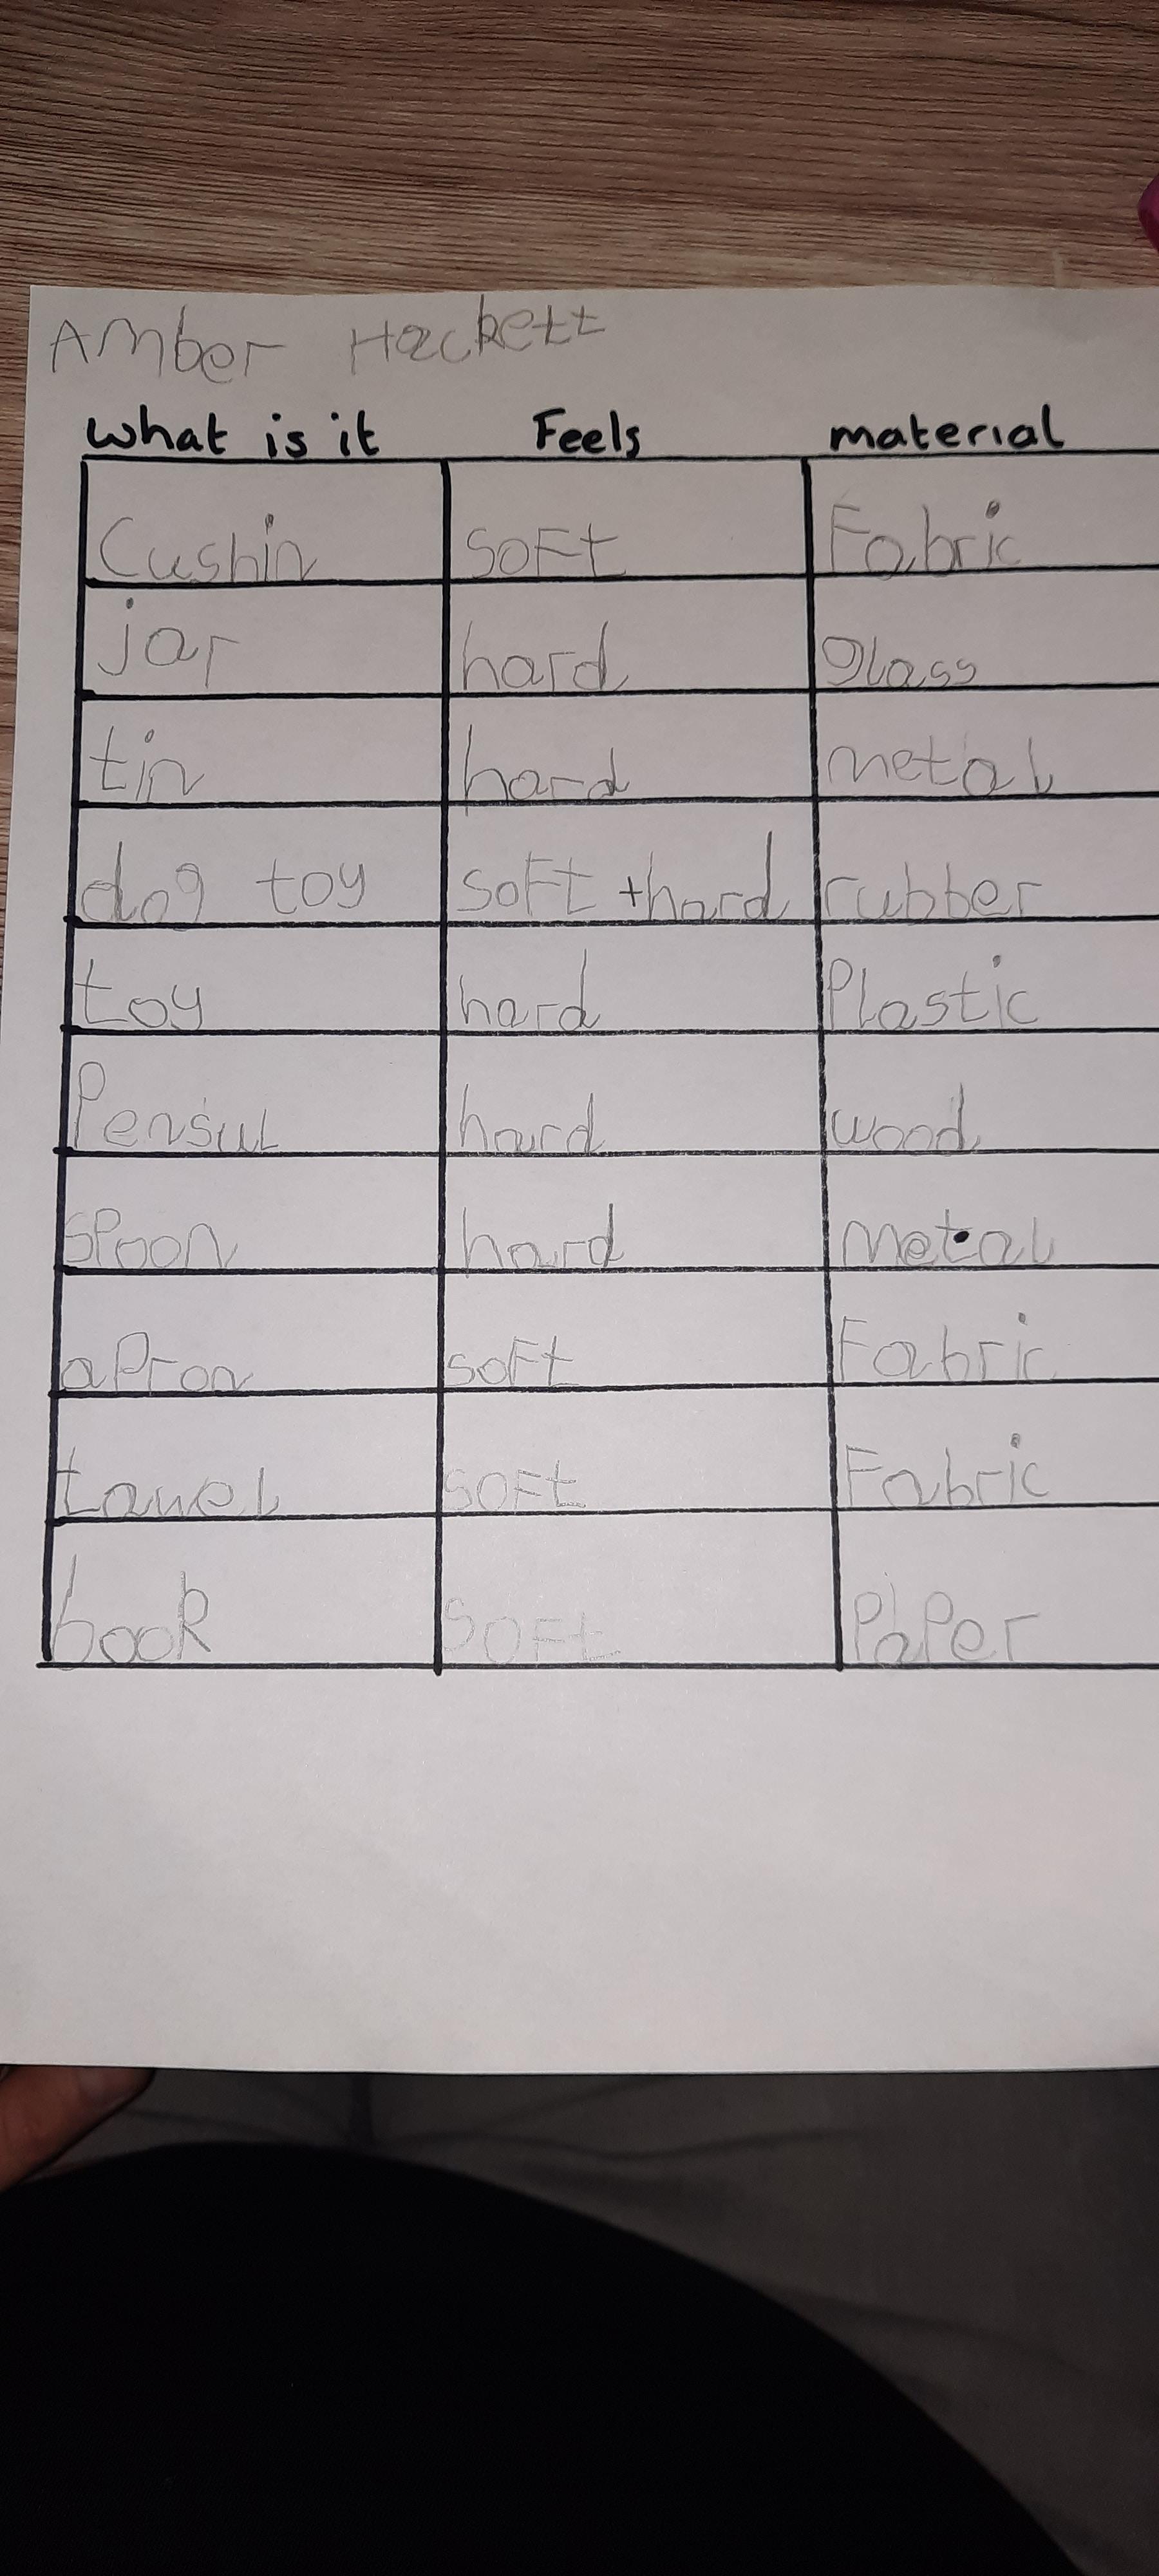 Amber Hackett
what is it Feels material
Cushin soft Fabric
jar hard glass
tin hard metal
dog toy soft + hard rubber
toy hard Plastic
Pensul hard wood
spoon hard metal
apron soft Fabric
tawel soft Fabric
book soft PaPer